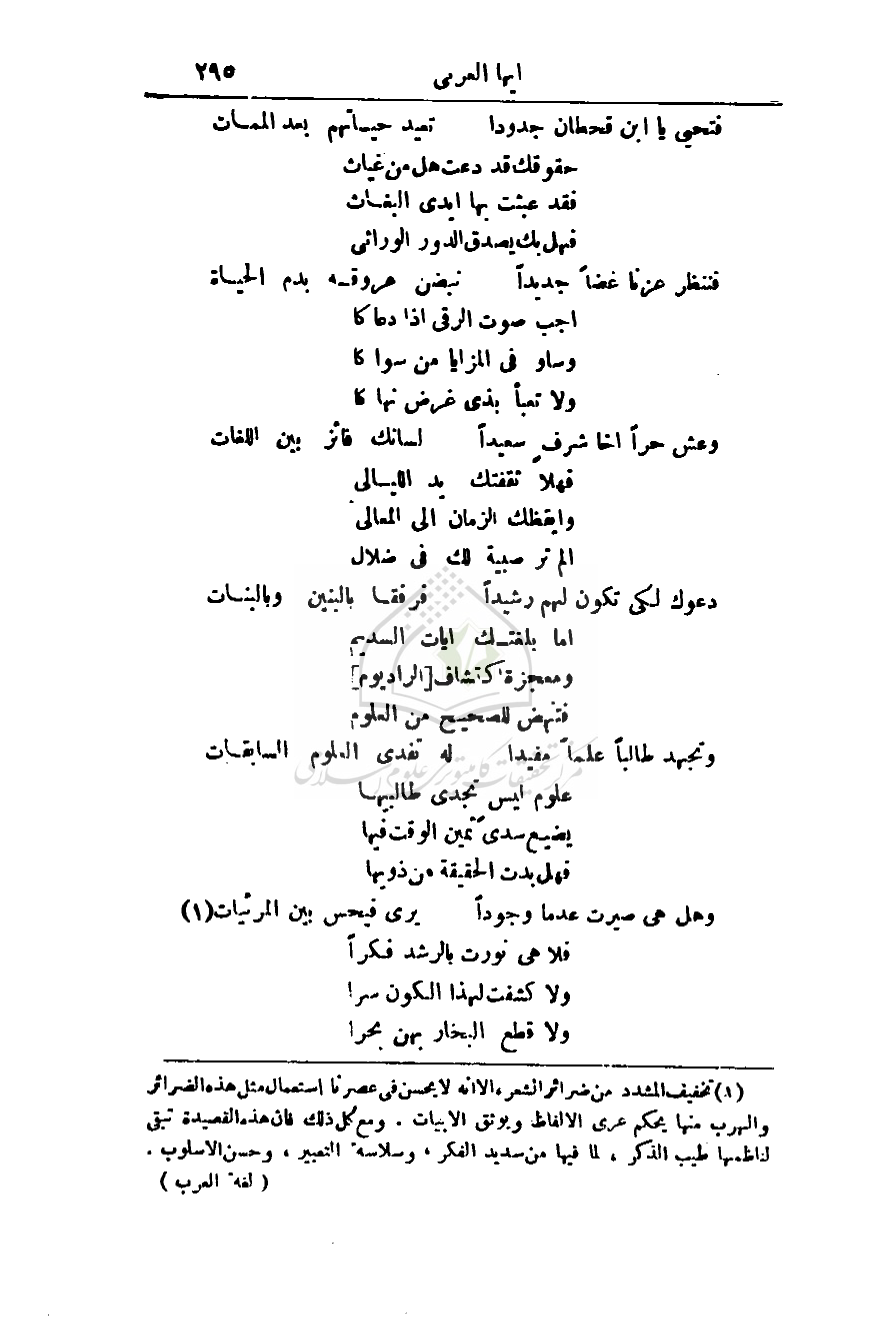 ايها العربى ٢٩٥
فتحيى يا ابن قحطان جدودا تعيد حياتهم بعد الممات
حقوقك قد دعت هل من غياث
فقد عبثت بها ايدى البغاث
فهل بك يصدق الدور الوراثى
فننظر عزنا غضاً جديداً نبضن عروقه بدم الحياة
اجب صوت الرقى اذا دعاكا
وساو فى المزايا من سواكا
ولا تعبأ بذى غرض نهاكا
وعش حراً اخا شرفٍ سعيداً لسانك فائز بين اللغات
فهلا ثقفتك يد الليالى
وايقظك الزمان الى المعالى
الم تر صبية لك فى ضلال
دعوك لكى تكون لهم رشيداً فرفقا بالبنين وبالبنات
اما بلغتك ايات السديم
ومعجزة اكتشاف [الراديوم]
فتنهض للصحيح من العلوم
وتجهد طالباً علماً مفيدا له تفدى العلوم السابقات
علوم ليس تجدى طالبيها
يضيع سدىً ثمين الوقت فيها
فهل بدت الحقيقة من ذويها
وهل هى صيرت عدما وجوداً يرى فيحس بين المرئيات (١)
فلا هى نورت بالرشد فكراً
ولا كشفت لهذا الكون سرا
ولا قطع البخار بهن بحرا
(١) تخفيف المشدد من ضرائر الشعر، الا انه لا يحسن فى عصرنا استعمال مثل هذه الضرائر
والهرب منها يحكم عرى الالفاظ ويوثق الابيات . ومع كل ذلك فان هذه القصيدة تبقى
لناظمها طيب الذكر ، لما فيها من سديد الفكر ، وسلاسة التعبير ، وحسن الاسلوب .
( لغة العرب )
مركز تحقيقات كامپيوترى علوم اسلامى